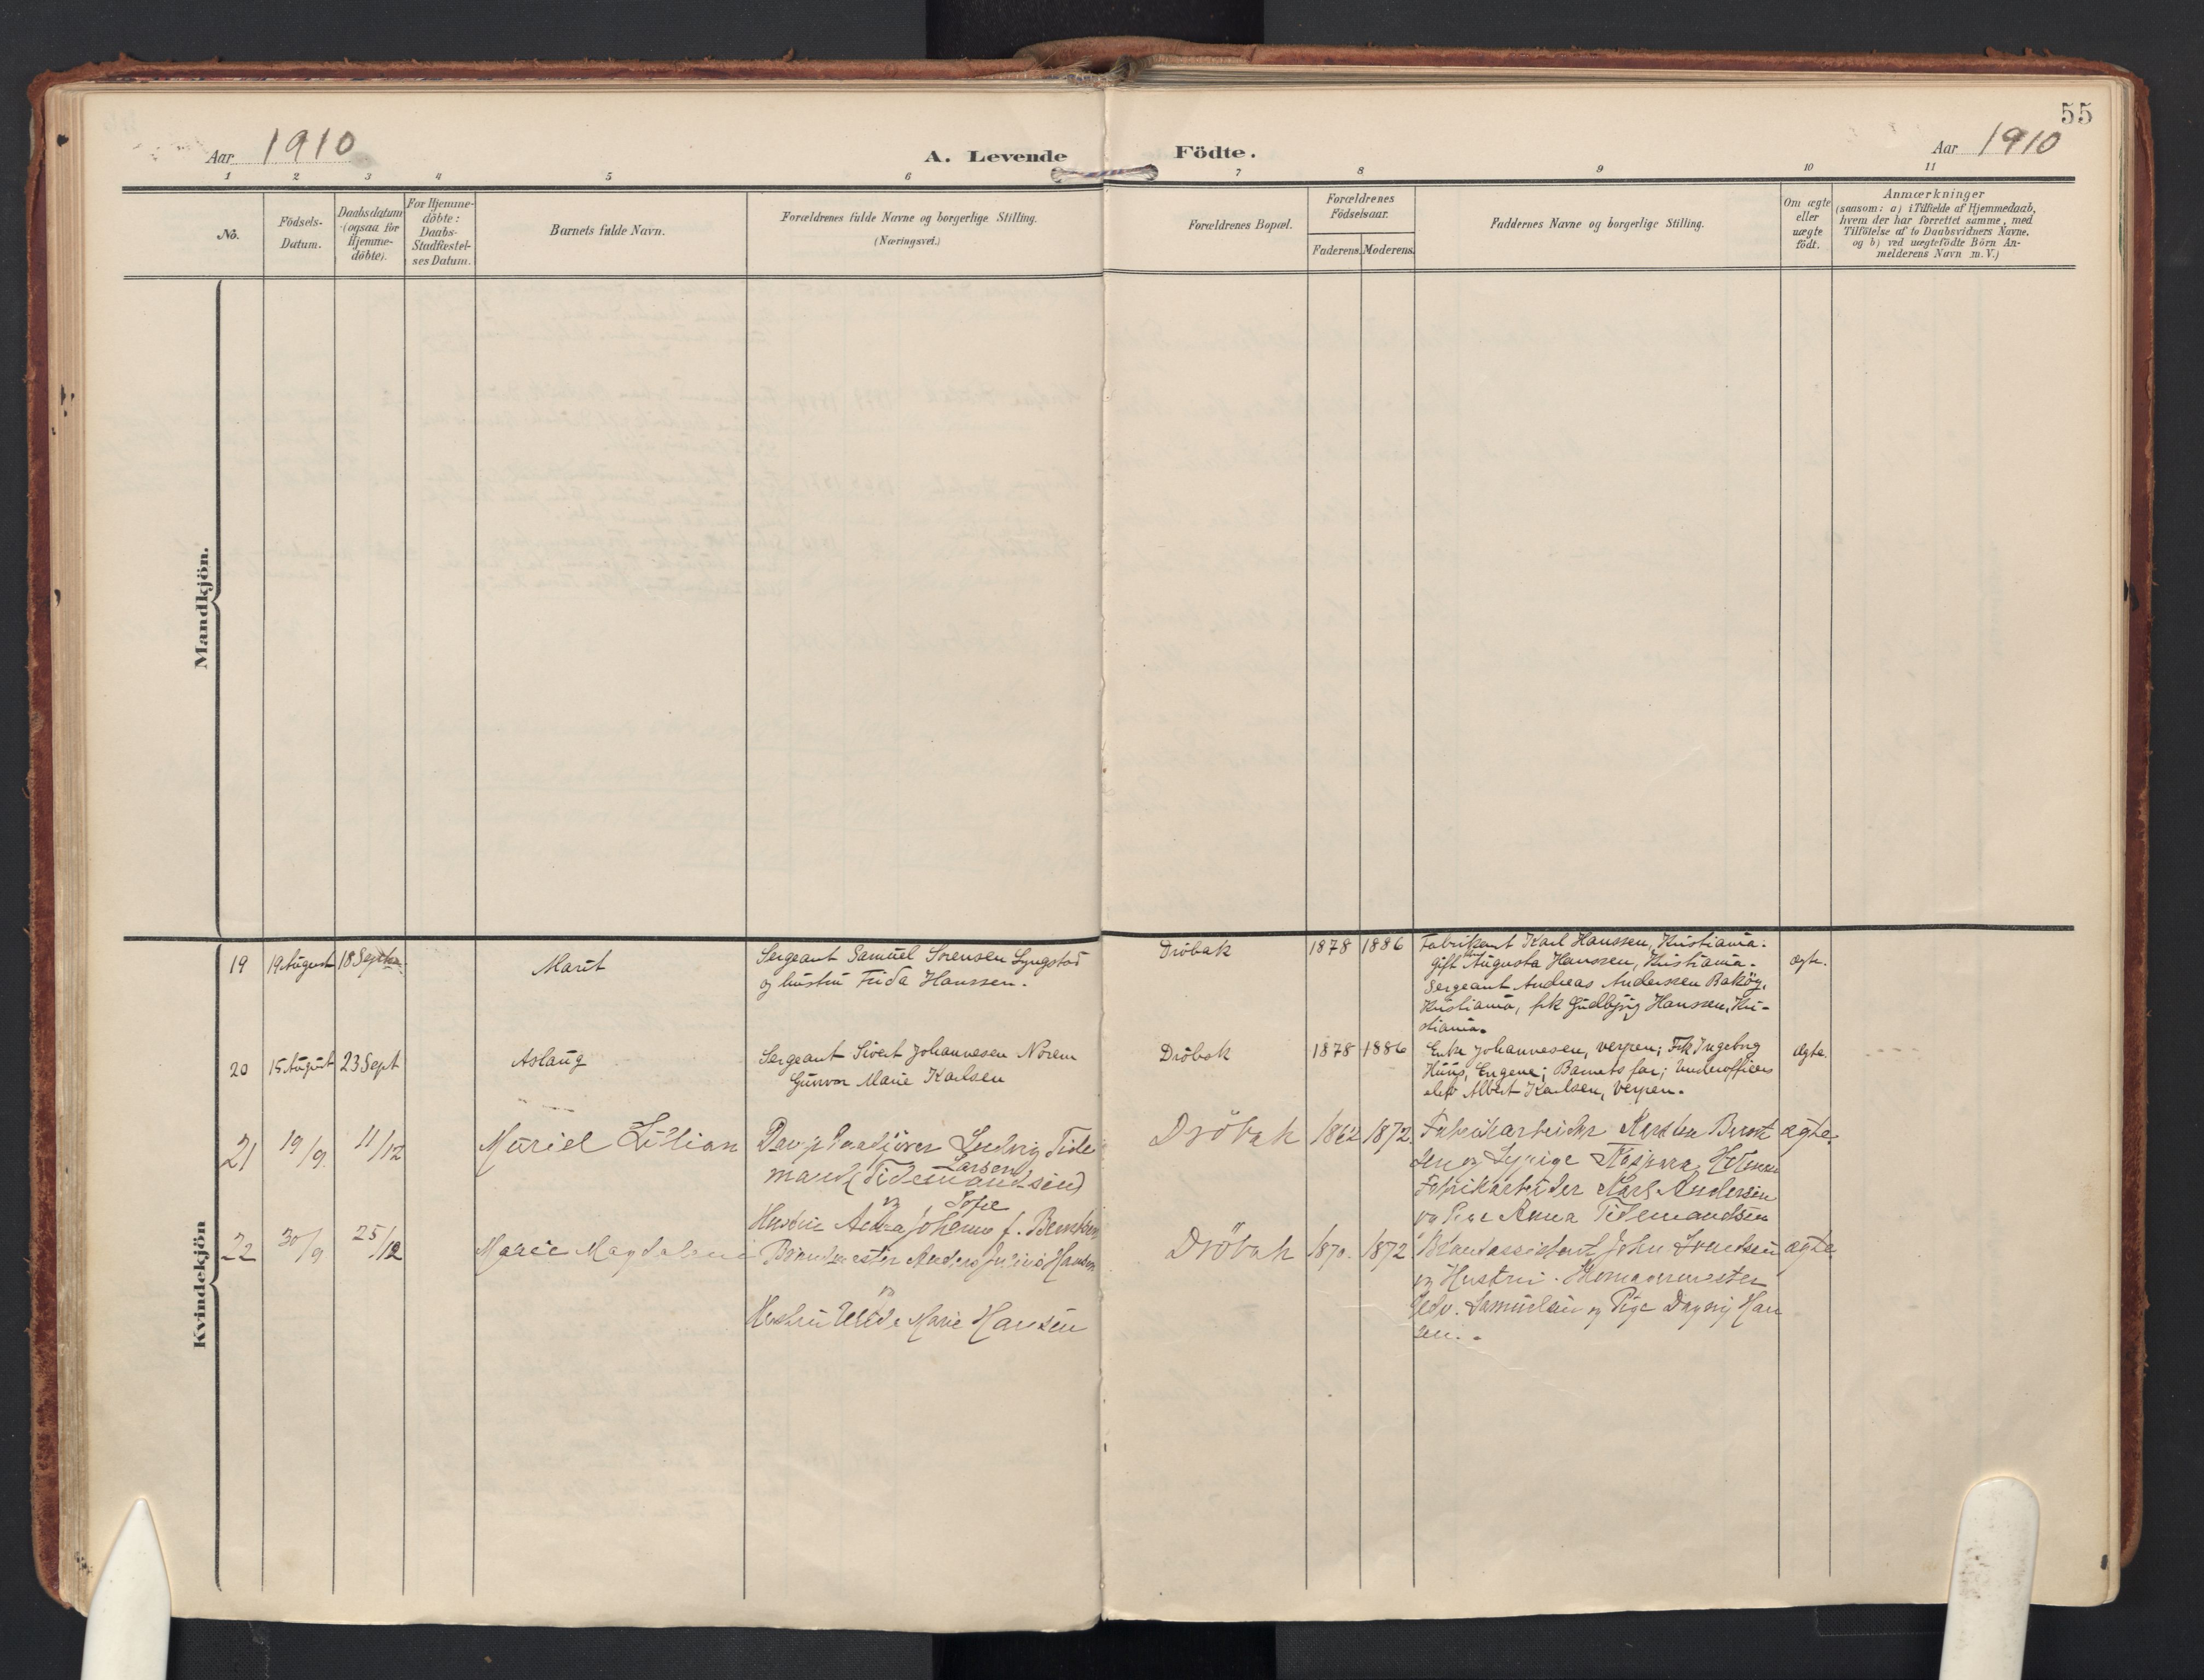 55
Aar 1910
A. Levende Födte.
Aar 1910
1 2 3 4 5 6 7 8 9 10 11
No.
Födsels-
Datum.
Daabsdatum
(ogsaa for
Hjemme-
döbte).
For Hjemme-
döbte:
Daabs-
Stadfæstel-
ses Datum.
Barnets fulde Navn.
Forældrenes fulde Navne og borgerlige Stilling.
(Næringsvei.)
Forældrenes Bopæl.
Forældrenes
Födselsaar.
Faderens. Moderens.
Faddernes Navne og borgerlige Stilling.
Om ægte
eller
uægte
födt.
Anmærkninger
(saasom: a) i Tilfælde af Hjemmedaab,
hvem der har forrettet samme, med
Tilföielse af to Daabsvidners Navne.
og b) ved uægtefödte Börn An-
melderens Navn m. V.)
Mandkjön.
Kvindekjön
19 19 August 18 Septbr. Marit
Sergeant Samuel Sörensen Lyngstad
og hustru Frida Hanssen.
Dröbak 1878 1886
Fabrikant Karl Hanssen, Kristiania.
Gift Augusta Hanssen, Kristiania.
Sergeant Andreas Anderssen Baköy,
Kristiania, frk Gudbjörg Hanssen, Kri-
stiania.
ægte.
20 15 August 23 Sept Aslaug
Sergeant Sivert Johannesen Norem
Gunvor Marie Karlsen
Dröbak 1878 1886
Enke Johannesen, verpen; Frk Ingeborg
Huus, Eugene; Barnets far; Underofficers
elev Albert Karlsen, Verpen.
ægte.
21 19/9 11/12 Muriel Lilian
Ludvig Tide
mand Larsen
(Tidemandsen)
og Sofie
Hustru Johanne f.
Dröbak 1862 1872
Fabrikarbeider
og
Fabrikarbeider Karl Andersen
og Pige Anna Tidemandsen
ægte.
22 30/9 25/12 Marie Magdalene
Brandmester Anders Julius Hansen
og
Hustru Marie Hansen
Dröbak 1870. 1872
Brandassistent John
og Hustru.
Edv. Samuelsen og Pige Dagny Han
sen.
ægte.